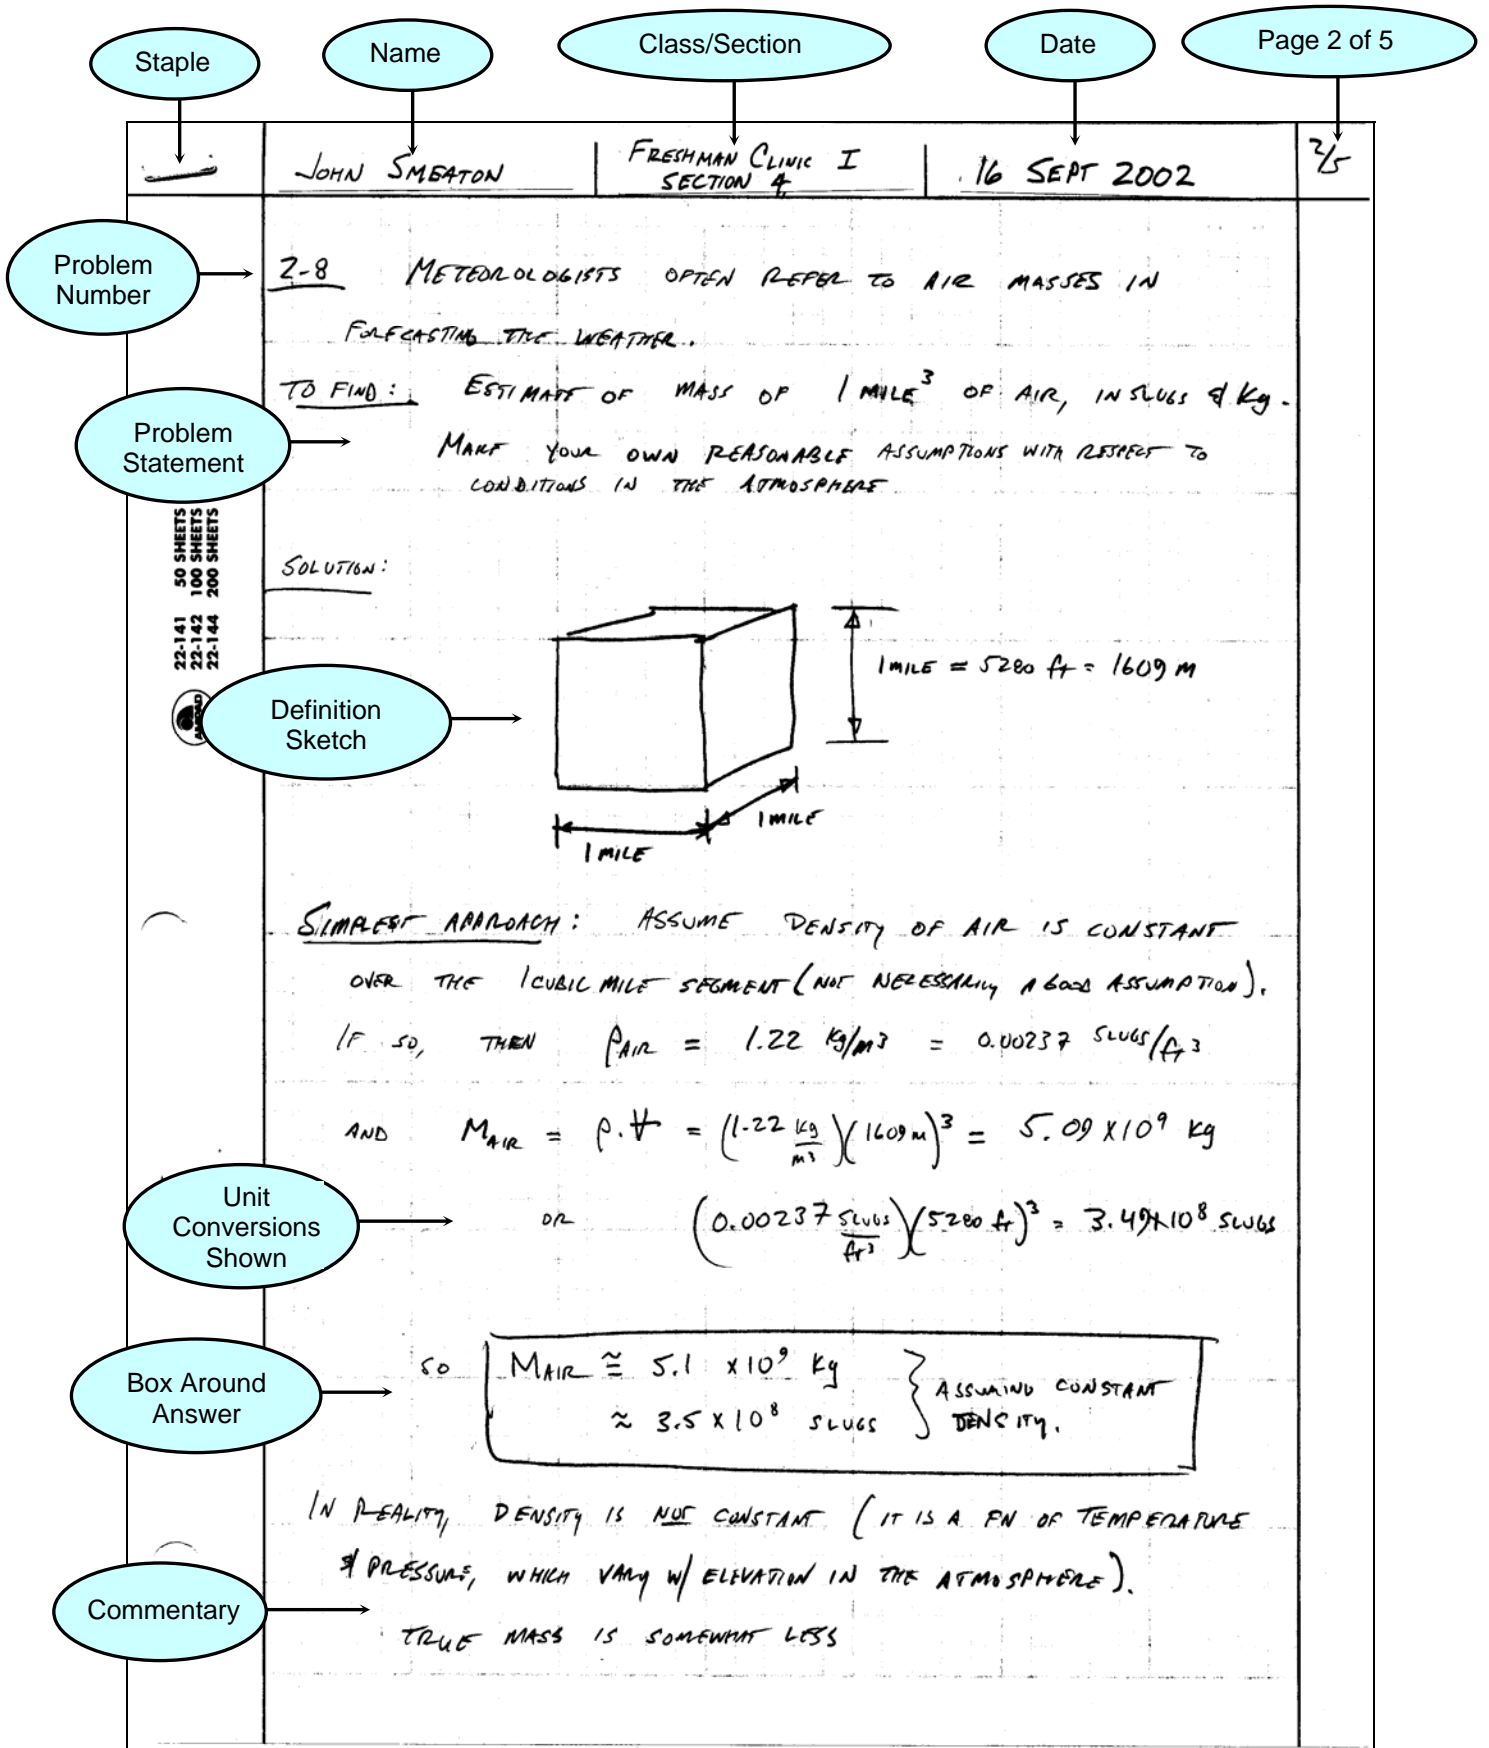 Staple
Name
Class/Section
Date
Page 2 of 5
JOHN SMEATON
FRESHMAN CLINIC I
SECTION 4
16 SEPT 2002
2/5
Problem
Number
2-8 METEOROLOGISTS OFTEN REFER TO AIR MASSES IN
FORECASTING THE WEATHER.
TO FIND: ESTIMATE OF MASS OF 1 MILE³ OF AIR, IN SLUGS & Kg.
Problem
Statement
MAKE YOUR OWN REASONABLE ASSUMPTIONS WITH RESPECT TO
CONDITIONS IN THE ATMOSPHERE
22-141 50 SHEETS
22-142 100 SHEETS
22-144 200 SHEETS
SOLUTION:
1 MILE = 5280 ft = 1609 m
Definition
Sketch
1 MILE
1 MILE
SIMPLEST APPROACH: ASSUME DENSITY OF AIR IS CONSTANT
OVER THE 1 CUBIC MILE SEGMENT (NOT NECESSARILY A GOOD ASSUMPTION).
IF SO, THEN ρAIR = 1.22 kg/m³ = 0.00237 SLUGS/ft³
AND MAIR = ρ.V = (1.22 kg/m³)(1609 m)³ = 5.09 X10⁹ kg
Unit
Conversions
Shown
OR (0.00237 SLUGS/ft³)(5280 ft)³ = 3.49X10⁸ SLUGS
Box Around
Answer
SO MAIR ≅ 5.1 X10⁹ Kg
≈ 3.5 X 10⁸ SLUGS } ASSUMING CONSTANT
DENSITY.
IN REALITY, DENSITY IS NOT CONSTANT (IT IS A FN OF TEMPERATURE
& PRESSURE, WHICH VARY W/ ELEVATION IN THE ATMOSPHERE).
Commentary
TRUE MASS IS SOMEWHAT LESS